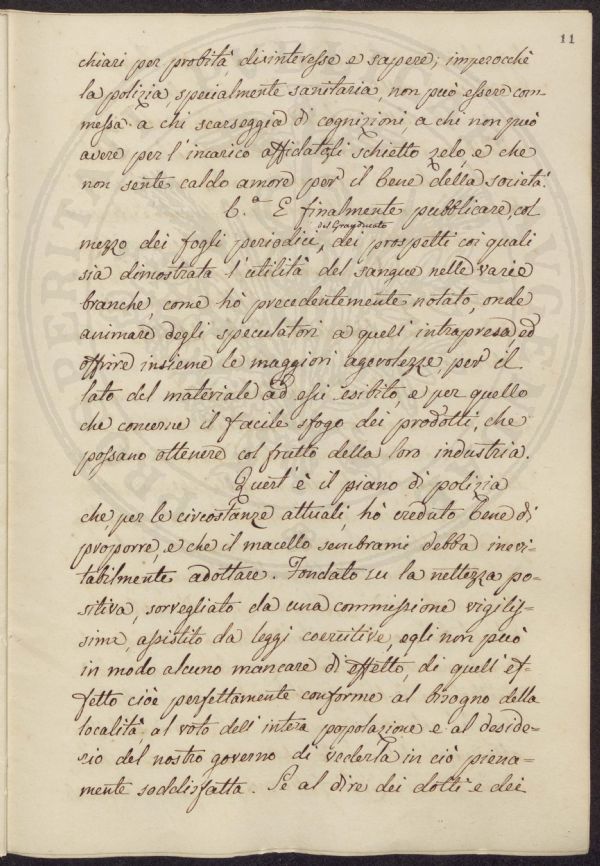 11
chiari per probità, disinteresse e sapere; imperocchè
la polizia, specialmente sanitaria, non può essere com-
messa a chi scarseggia di cognizioni, a chi non può
avere per l'incarico affidatogli schietto zelo, e che
non sente caldo amore per il bene della società.
6.ª E finalmente pubblicare, col
del Granducato
mezzo dei fogli periodici, dei prospetti coi quali
sia dimostrata l'utilità del sangue nelle varie
branche, come hò precedentemente notato, onde
animare degli speculatori a quell'intrapresa, ed
offrire insieme le maggiori agevolezze, per il
lato del materiale ad essi esibito, e per quello
che concerne il facile sfogo dei prodotti, che
possano ottenere col frutto della loro industria.
Quest'è il piano di polizia
che, per le circostanze attuali, hò creduto bene di
proporre, e che il macello sembrami debba inevi-
tabilmente adottare. Fondato su la nettezza po-
sitiva, sorvegliato da una commissione vigilis-
sima, assistito da leggi coercitive, egli non può
in modo alcuno mancare di effetto, di quell'ef-
fetto cioè perfettamente conforme al bisogno della
località, al voto dell'intera popolazione e al deside-
rio del nostro governo di vederla in ciò piena-
mente soddisfatta. Se al dire dei dotti e dei